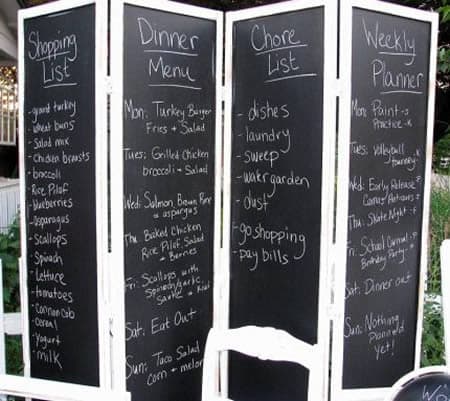 Shopping
List
-ground turkey
-wheat buns
-Salad mix
-Chicken breasts
-broccoli
-Rice Pilaf
-blueberries
-asparagus
-scallops
-Spinach
-Lettuce
-tomatoes
-Corn on cob
-cereal
-yogurt
-milk
Dinner
Menu
Mon: Turkey Burger
Fries + Salad
Tues: Grilled Chicken
broccoli + Salad
Wed: Salmon Brown Rice
+ asparagus
Thu: Baked Chicken
Rice Pilaf, Salad
+ Berries
Fri: Scallops with
Spinach/garlic
Saute + Rice
Sat: Eat Out
Sun: Taco Salad
corn + melon
Chore
List
- dishes
- laundry
- sweep
- water garden
- dust
- go shopping
- pay bills
Weekly
Planner
Mon: Paint
Practice
Tues: Volleyball
tourney
Wed: Early Release
Thu: Skate Night
Fri: School Carnival
Birthday Party
Sat: Dinner out
Sun: Nothing
Planned
yet!